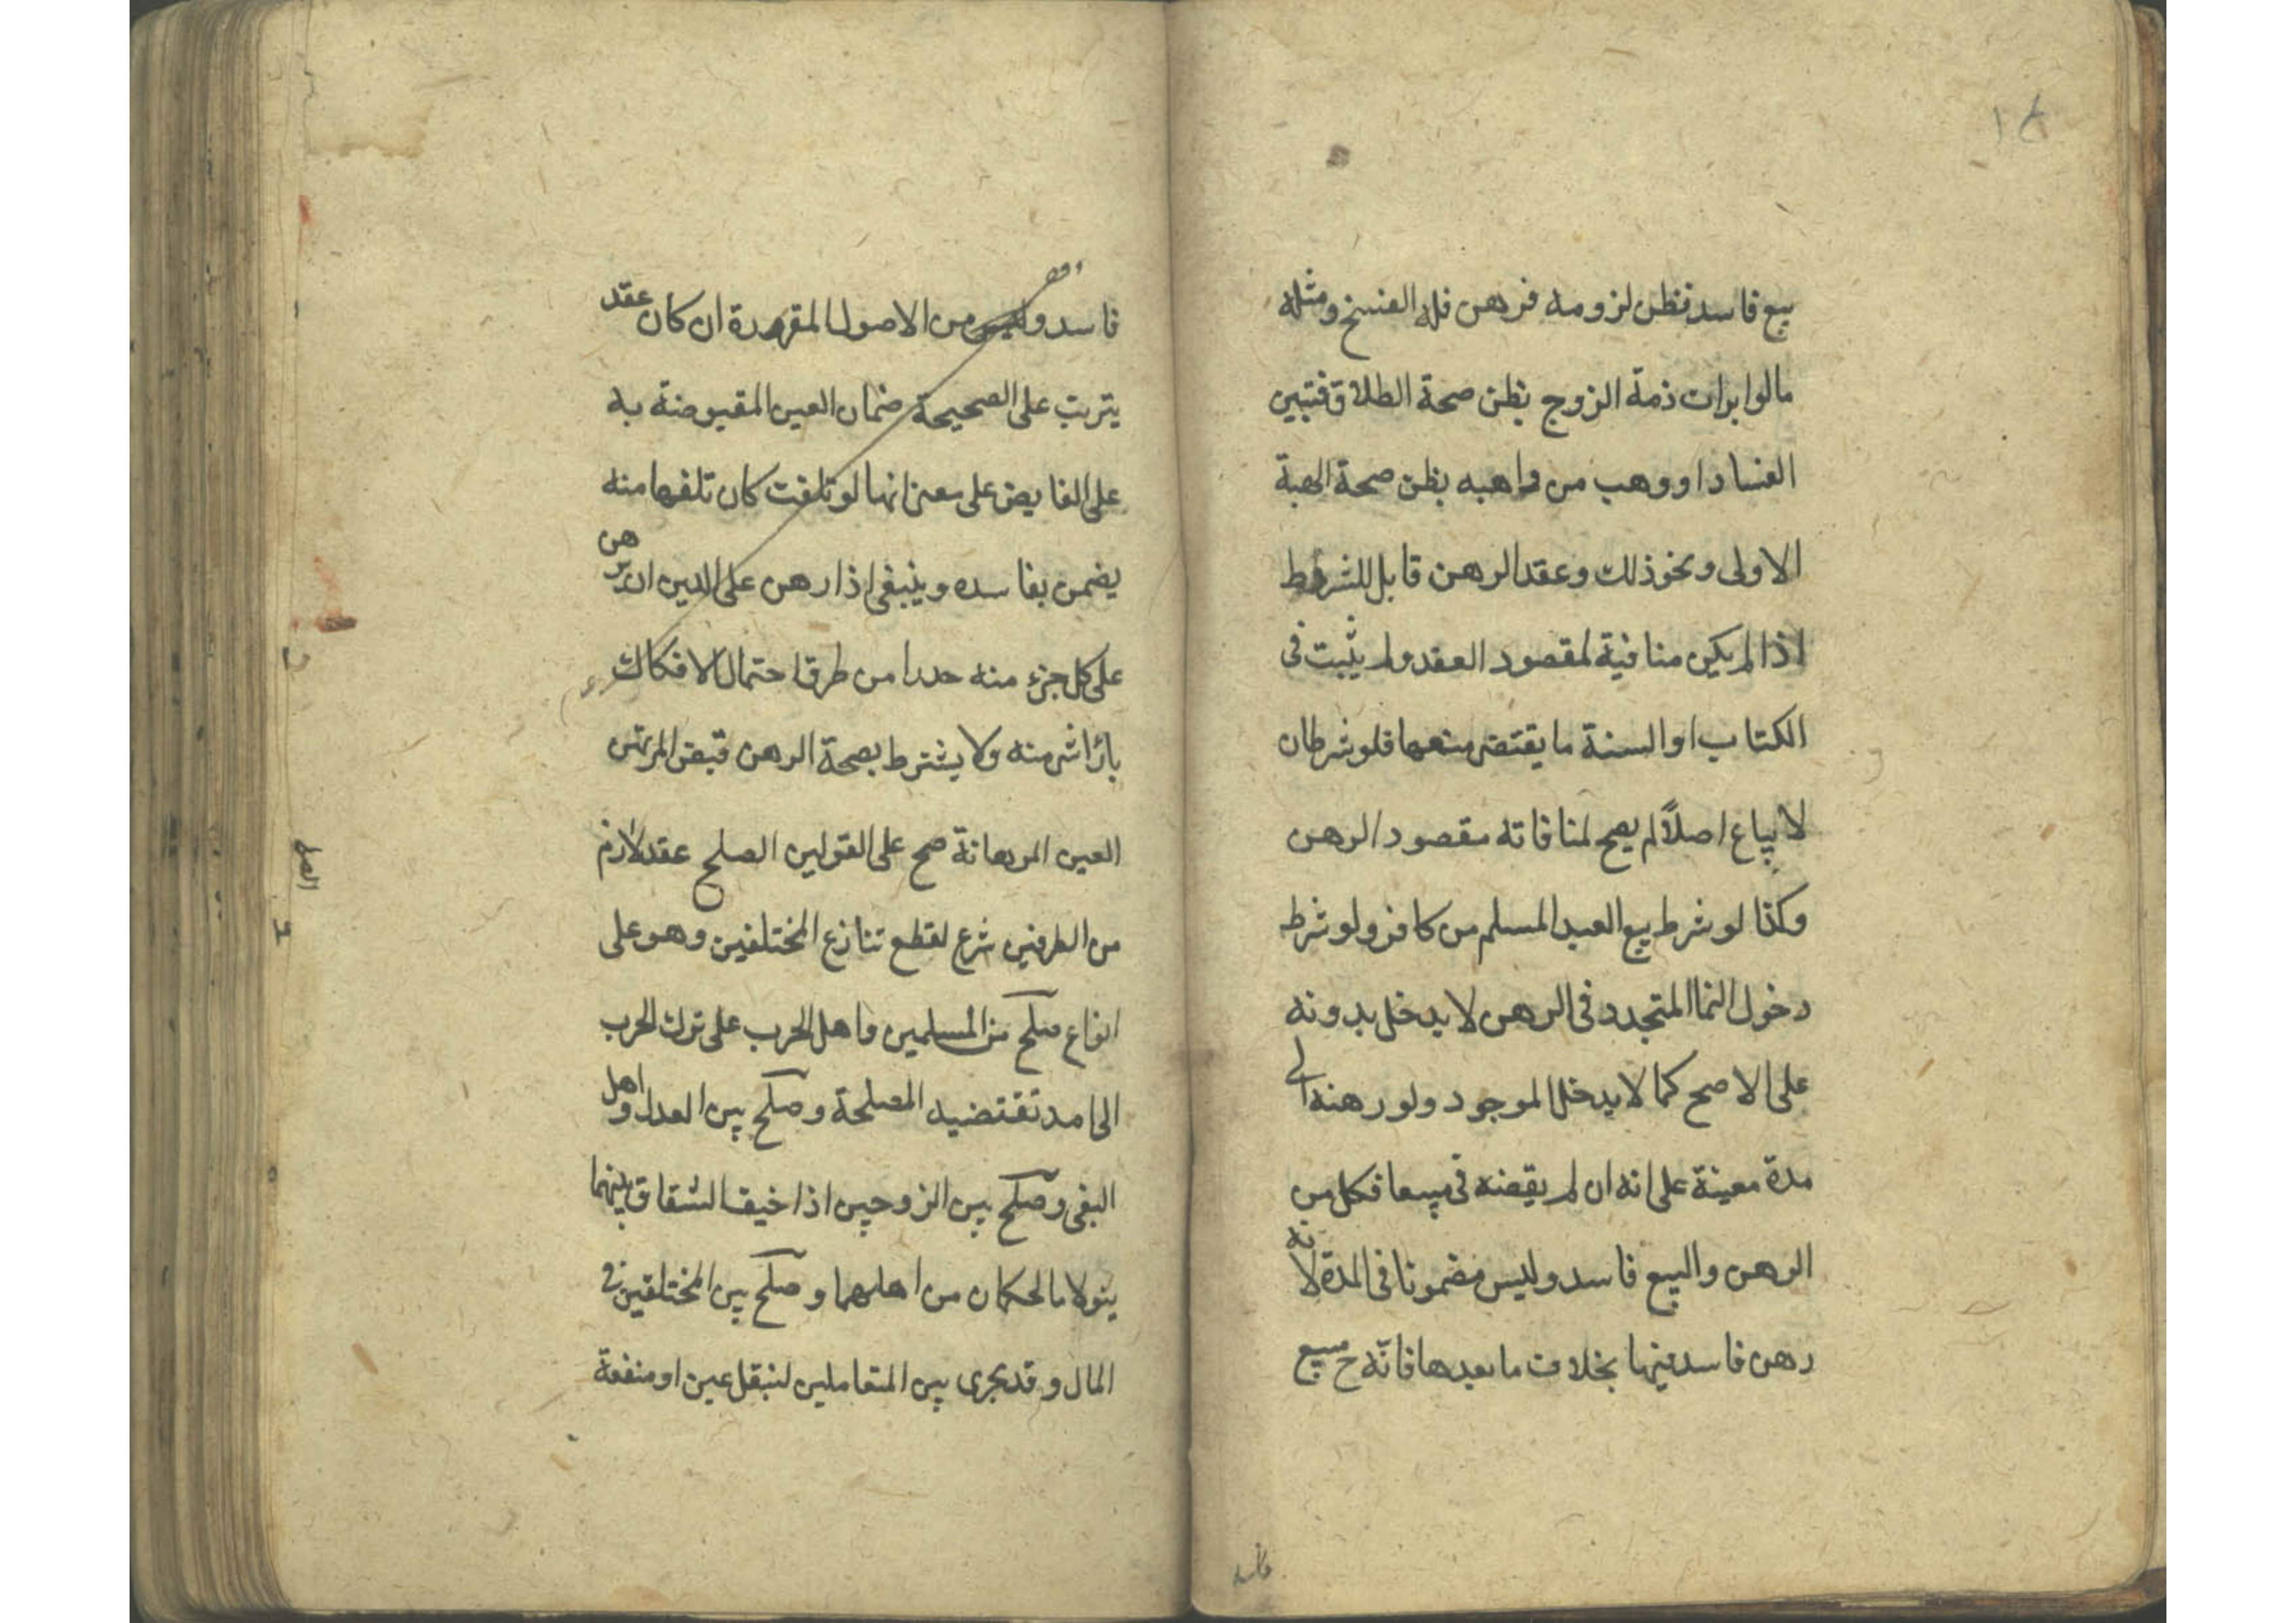 بيع فاسد فظن لزومه فرهن فله الفسخ ومثله
مالو ابرات ذمة الزوج بظن صحة الطلاق فتبين
الفساد او وهب من واهبه بظن صحة الهبة
الاولى ونحو ذلك وعقد الرهن قابل للشروط
اذا لم يكن منافية لمقصود العقد ولم يثبت فى
الكتاب او السنة ما يقتضى منعها فلو شرط ان
لا يباع اصلاً لم يصح لمنافاته مقصود الرهن
وكذا لو شرط بيع العبد المسلم من كافر ولو شرط
دخول النما المتجدد فى الرهن لا يدخل بدونه
على الاصح كما لا يدخل الموجود ولو رهنه الى
مدة معينة على انه ان لم يقضه فى مبيعا فكل من
الرهن والبيع فاسد وليس مضمونا فى المدة لانه
رهن فاسد فيها بخلاف ما بعدها فانه ح مبيع
فاسد
فاسد و من الاصول المقررة ان كان عقد
يترتب على الصحيحة ضمان العين المقبوضة به
على القابض على معنى انها لو تلفت كان تلفها منه
يضمن بفاسده وينبغى اذا رهن على الدين ان يرهن
على كل جزء منه حذرا من طرق احتمال الافكاك
ولا يشترط بصحة الرهن قبض المرتهن
العين المرهانة صح على القولين الصلح عقد لازم
من الطرفين شرع لقطع تنازع المختلفين وهو على
انواع صلح من المسلمين واهل الحرب على ترك الحرب
الى امد تقتضيه المصلحة وصلح بين العدل واهل
البغى وصلح بين الزوجين اذا خيف الشقاق بينهما
يتولاه الحكمان من اهلهما وصلح بين المختلفين فى
المال وقد يجرى بين المتعاملين لنقل عين او منفعة